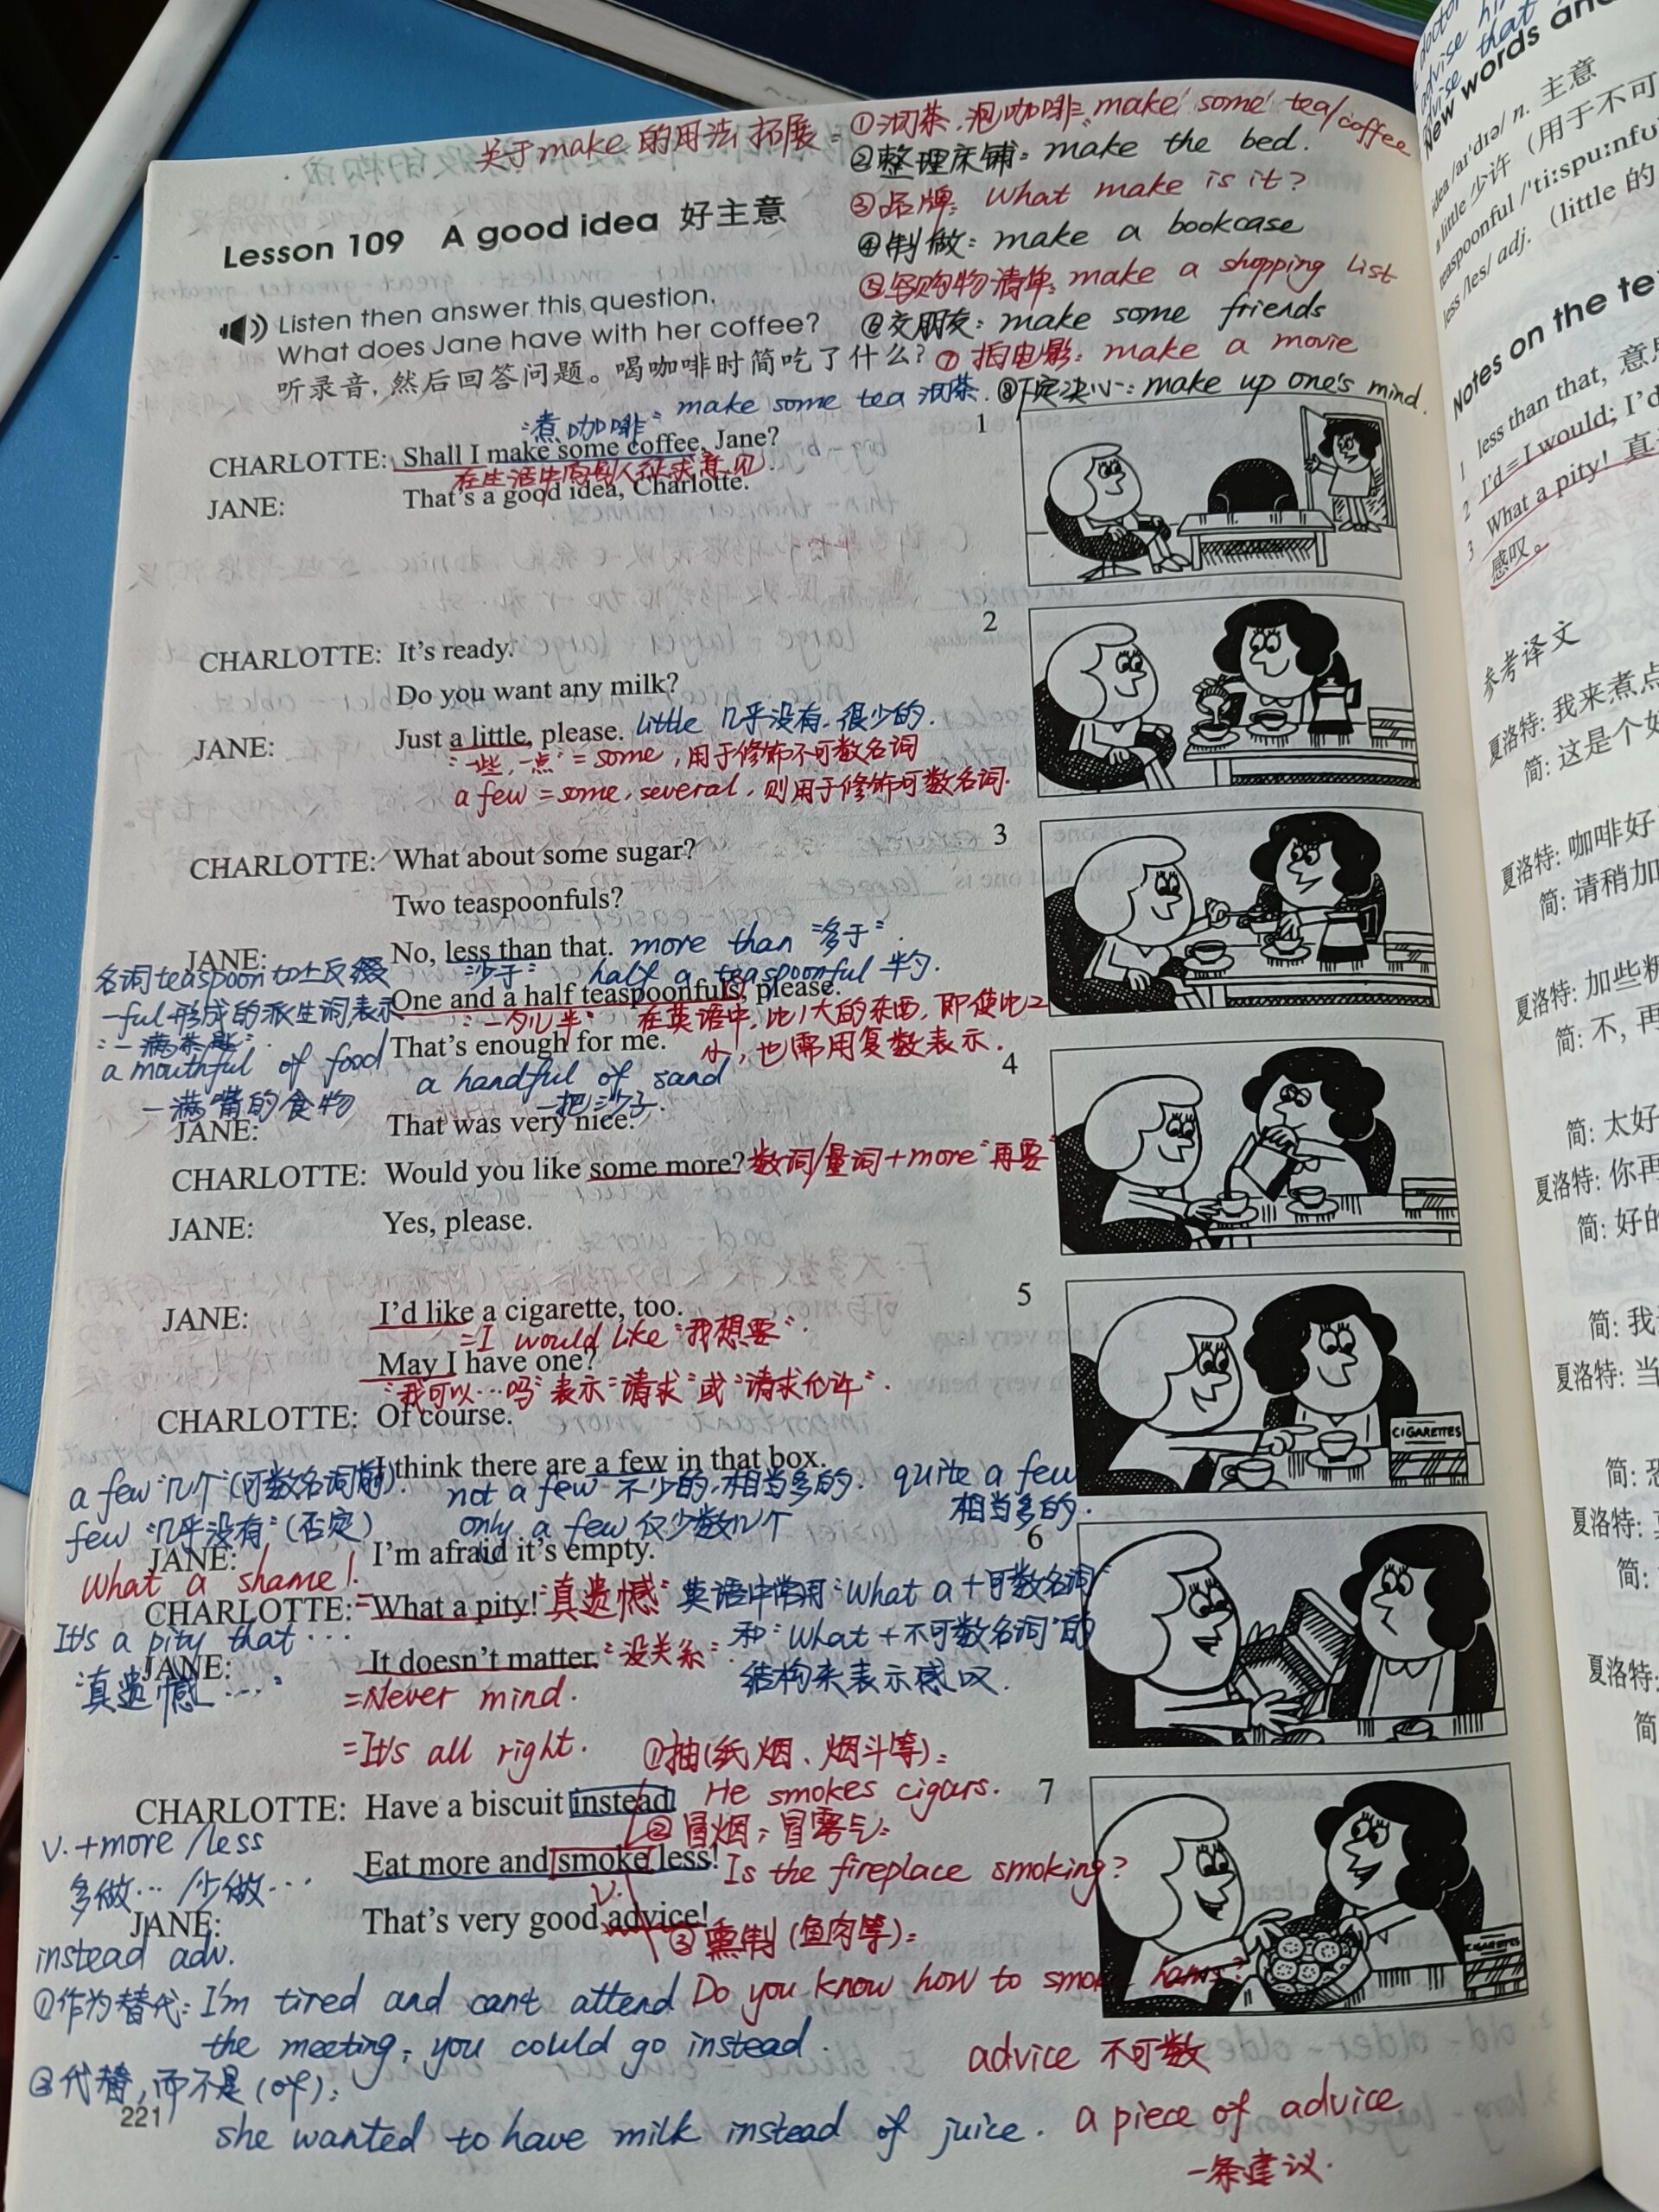 关于make的用法拓展:
①沏茶、泡咖啡: make some tea/coffee
②整理床铺: make the bed.
③品牌: What make is it?
④制做: make a bookcase
⑤写购物清单: make a shopping list
⑥交朋友: make some friends
⑦拍电影: make a movie
⑧下定决心: make up one's mind.
Lesson 109 A good idea 好主意
Listen then answer this question.
What does Jane have with her coffee?
听录音，然后回答问题。喝咖啡时简吃了什么?
"煮咖啡" make some tea 沏茶.
1
CHARLOTTE: Shall I make some coffee, Jane?
在生活中向别人征求意见.
JANE: That's a good idea, Charlotte.
2
CHARLOTTE: It's ready.
Do you want any milk?
JANE: Just a little, please. little 几乎没有.很少的.
"一些,一点" = some, 用于修饰不可数名词
a few = some, several, 则用于修饰可数名词.
3
CHARLOTTE: What about some sugar?
Two teaspoonfuls?
JANE: No, less than that. more than "多于".
"少于" half a teaspoonful 半勺.
One and a half teaspoonfuls, please.
"一勺儿半" 在英语中,比1大的东西,即使比2
小,也需用复数表示.
That's enough for me.
名词teaspoon加上后缀
-ful形成的派生词表示
"一满茶匙".
a mouthful of food
一满嘴的食物
a handful of sand
一把沙子.
4
JANE: That was very nice.
CHARLOTTE: Would you like some more? 数词/量词+more "再要"
JANE: Yes, please.
5
JANE: I'd like a cigarette, too.
=I would like "我想要".
May I have one?
"我可以…吗" 表示"请求"或"请求允许".
CHARLOTTE: Of course.
I think there are a few in that box.
CIGARETTES
a few "几个"(可数名词前). not a few 不少的,相当多的. quite a few
相当多的.
few "几乎没有"(否定) only a few 仅少数几个
6
JANE: I'm afraid it's empty.
What a shame!
CHARLOTTE: =What a pity! "真遗憾" 英语中常用"What a+可数名词"
和"What+不可数名词"的
结构来表示感叹.
It's a pity that …
"真遗憾……"
JANE: It doesn't matter. "没关系".
=Never mind.
=It's all right.
①抽(纸烟、烟斗等):
He smokes cigars.
7
CHARLOTTE: Have a biscuit instead.
②冒烟;冒雾气:
Is the fireplace smoking?
Eat more and smoke less!
v.
v.+more/less
多做…/少做…
JANE: That's very good advice!
③熏制(鱼肉等):
Do you know how to smoke hams?
CIGARETTES
instead adv.
①作为替代: I'm tired and can't attend
the meeting, you could go instead.
②代替,而不是(of):
she wanted to have milk instead of juice.
advice 不可数
a piece of advice
一条建议.
221
advise
New words and
idea /aɪ'dɪə/ n. 主意
a little 少许（用于不可
teaspoonful /'tiːspuːnfu
less /les/ adj.（little 的
Notes on the te
1 less than that, 意思
2 I'd = I would; I'd
3 What a pity! 真
感叹。
参考译文
夏洛特: 我来煮点
简: 这是个好
夏洛特: 咖啡好
简: 请稍加
夏洛特: 加些糖
简: 不, 再
简: 太好
夏洛特: 你再
简: 好的
简: 我
夏洛特: 当
简: 恐
夏洛特:
简:
夏洛特:
简